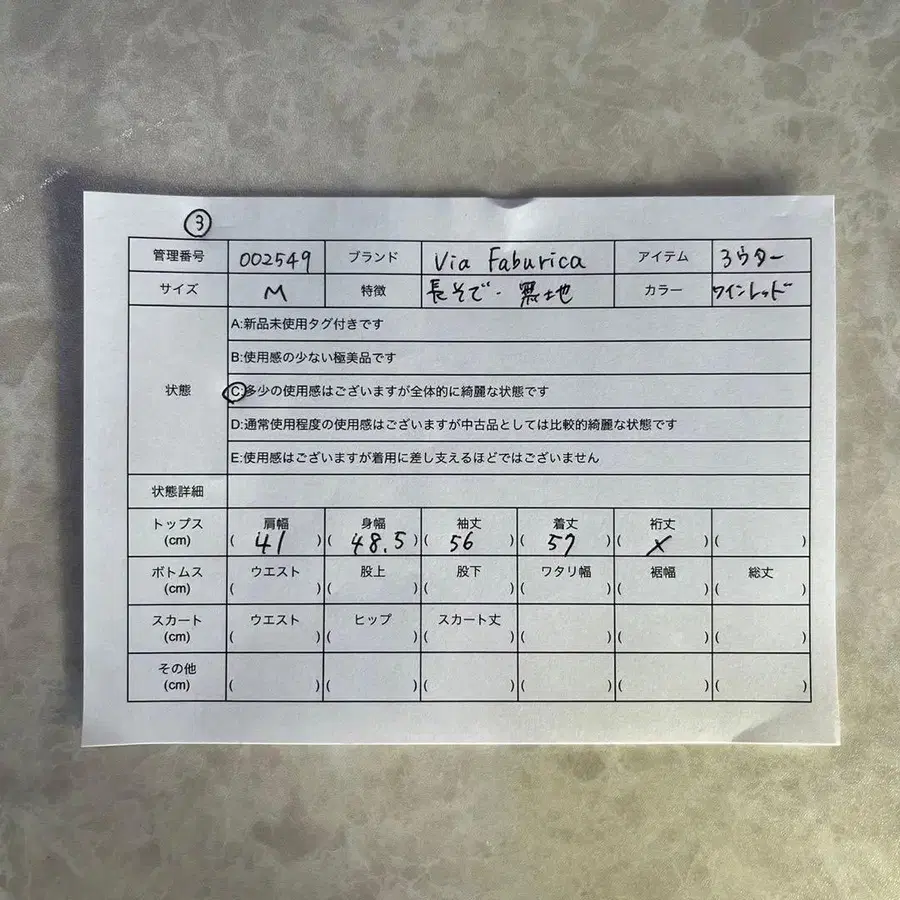 ③
管理番号 002549 ブランド Via Faburica アイテム アウター
サイズ M 特徴 長そで・無地 カラー ワインレッド
A:新品未使用タグ付きです
B:使用感の少ない極美品です
状態 C:多少の使用感はございますが全体的に綺麗な状態です
D:通常使用程度の使用感はございますが中古品としては比較的綺麗な状態です
E:使用感はございますが着用に差し支えるほどではございません
状態詳細
トップス 肩幅 身幅 袖丈 着丈 裄丈
(cm) ( 41 ) ( 48.5 ) ( 56 ) ( 57 ) ( × ) ( )
ボトムス ウエスト 股上 股下 ワタリ幅 裾幅 総丈
(cm) ( ) ( ) ( ) ( ) ( ) ( )
スカート ウエスト ヒップ スカート丈
(cm) ( ) ( ) ( ) ( ) ( ) ( )
その他
(cm) ( ) ( ) ( ) ( ) ( ) ( )